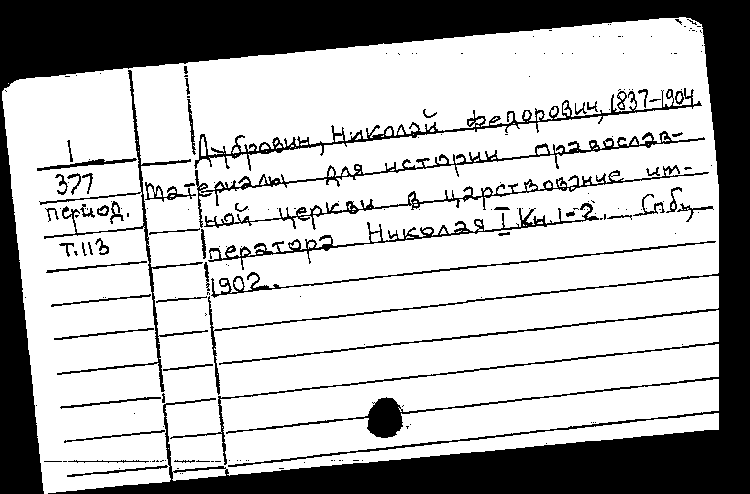 Дубровин, Николай Федорович, 1837-1904.
1
377
период.
т.113
Материалы для истории православ-
ной церкви в царствование им-
ператора Николая I Кн. 1-2. Спб,
1902.